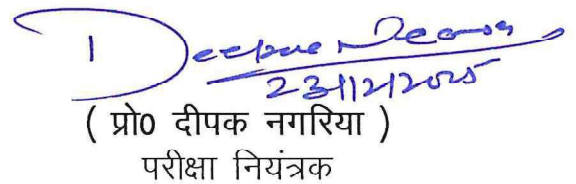 Deepak Nagaria
23/12/2025
( प्रो0 दीपक नगरिया )
परीक्षा नियंत्रक